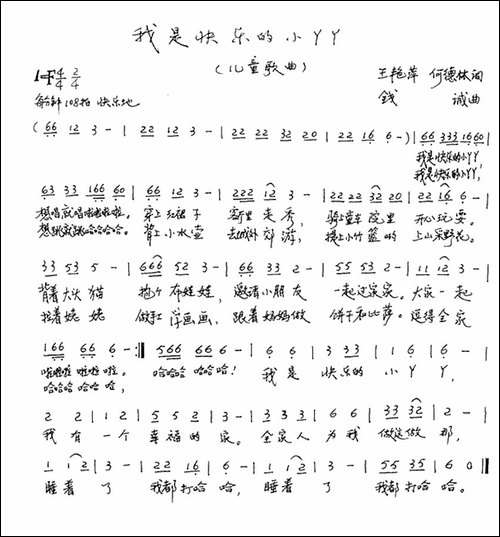 我是快乐的小丫丫
(儿童歌曲)
1=F 4/4 2/4 王艳萍 何德林词
每分钟108拍 快乐地 钱诚曲
(66 12 3 - | 22 12 3 - | 22 22 32 20 | 22 16 6 -) | 66 333 16 60 |
我是快乐的小丫丫,
我是快乐的小丫丫,
63 33 166 60 | 66 12 3 - | 222 12 3 - | 22 22 32 20 | 22 16 6 - |
想唱就唱啦啦啦啦。穿上红裙子 客厅走秀, 骑上童车院里 开心玩耍。
想跳就跳哈哈哈哈。背上小水壶 去城外郊游, 挎上小竹篮的 上山采野花。
33 53 5 - | 666 52 3 - | 66 33 2 - | 55 53 2 - | 11 12 3 - |
背着大灰猫 抱个布娃娃, 邀请小朋友 一起过家家。大家一起
拉着姥姥 做手工洋画画, 跟着妈妈做 饼干和比萨。逗得全家
166 66 6 - :‖ 566 666 6 - | 6 6 | 3 33 | 1 6 | 6 - |
啦啦啦 啦啦 啦。 哈哈哈 哈哈哈! 我是快乐的小丫丫,
哈哈哈 哈哈 哈,
2 2 | 1 2 | 5 5 2 | 3 - | 3 3 3 | 6 6 | 33 32 | 2 - |
我有一个幸福的家。全家人为我做这做那,
1 12 | 3 - | 22 16 | 6 - | 1 12 | 3 - | 55 35 | 6 0 |
睡着了 我都打哈哈, 睡着了 我都打哈哈。